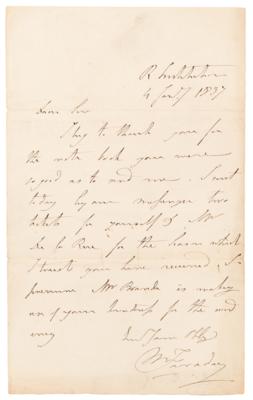 R Institution
4 Jany 1837
Dear Sir
I beg to thank you for
the note book you were
so good as to send me. I sent
today by our messenger two
tickets for yourself & Mr
De la Rue for the season which
I trust you have received. I
presume Mr is making
use of your for the
Yours
M Faraday